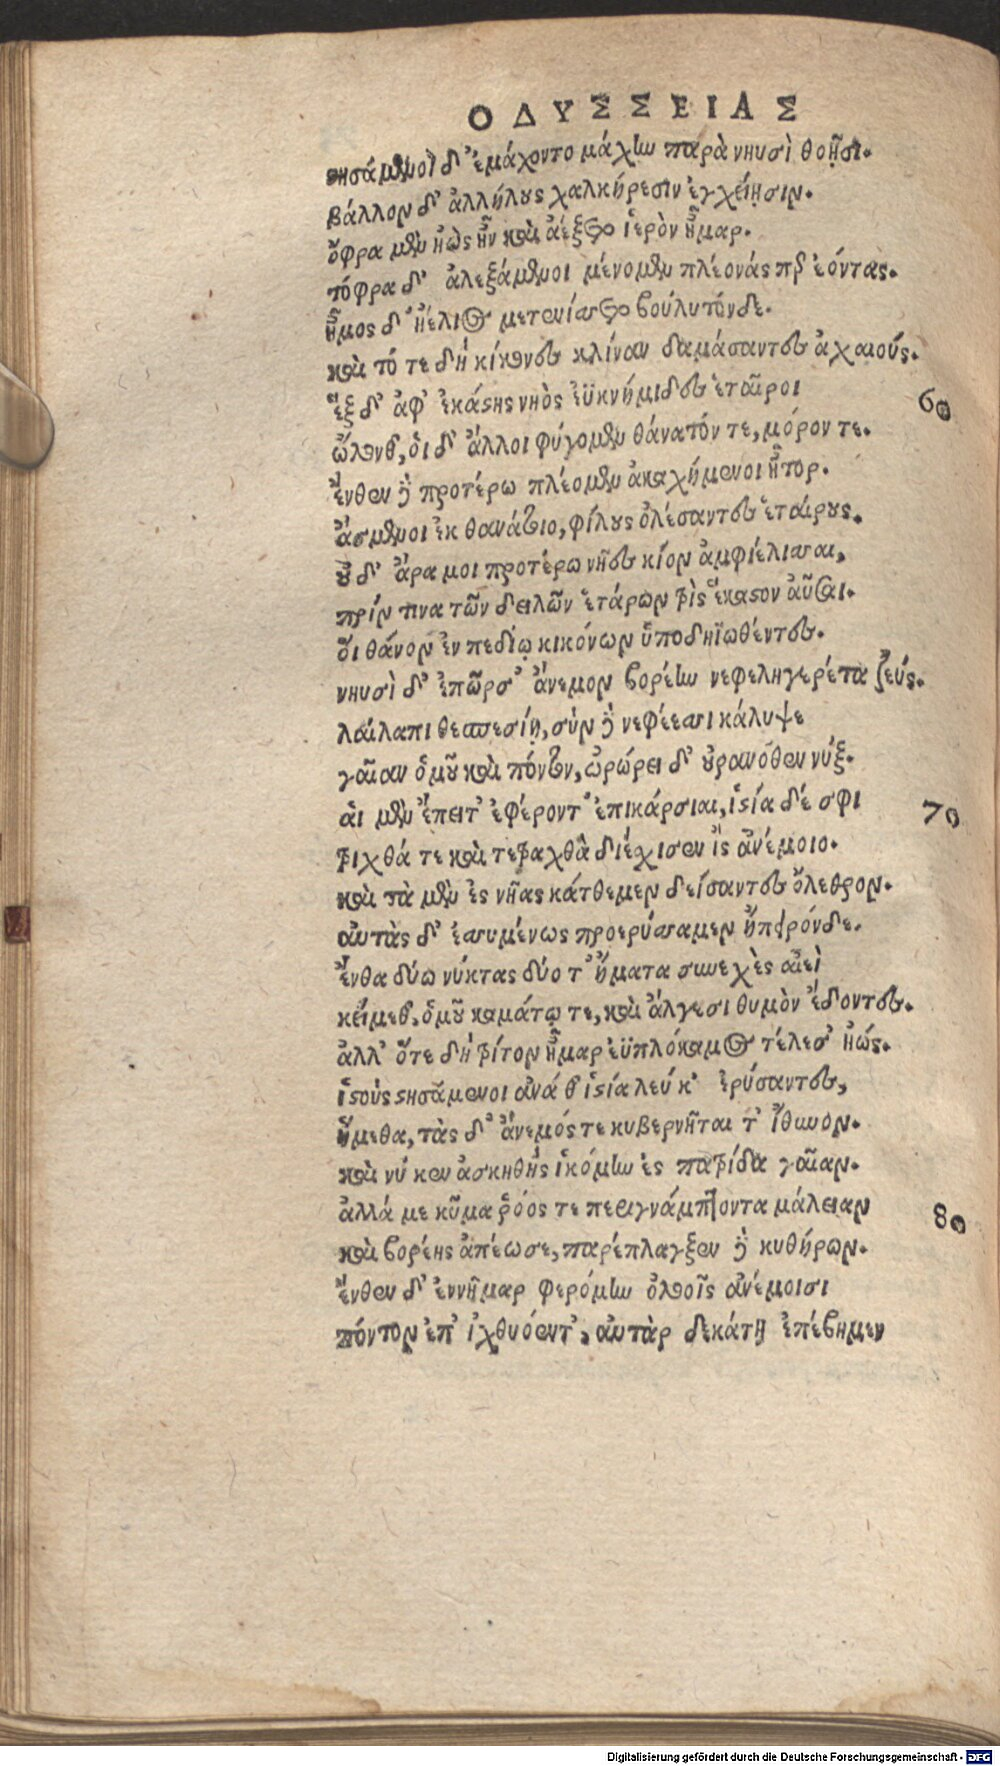 ΟΔΥΣΣΕΙΑΣ
στησάμενοι δ' ἐμάχοντο μάχην παρὰ νηυσὶ θοῇσι.
βάλλον δ' ἀλλήλους χαλκήρεσιν ἐγχείῃσιν.
ὄφρα μὲν ἠὼς ἦν καὶ ἀέξετο ἱερὸν ἦμαρ.
τόφρα δ' ἀλεξάμενοι μένομεν πλέονάς περ ἐόντας.
ἦμος δ' ἠέλιος μετενίσσετο βούλυτόνδε.
καὶ τό τε δὴ κίκονες κλίναν δαμάσαντες ἀχαιούς.
ἓξ δ' ἀφ' ἑκάστης νηὸς ἐϋκνήμιδες ἑταῖροι 60
ὤλονθ', οἱ δ' ἄλλοι φύγομεν θάνατόν τε, μόρον τε.
ἔνθεν δὲ προτέρω πλέομεν ἀκαχήμενοι ἦτορ.
ἄσμενοι ἐκ θανάτοιο, φίλους ὀλέσαντες ἑταίρους.
οὐ δ' ἄρα μοι προτέρω νῆες κίον ἀμφιέλισσαι,
πρίν τινα τῶν δειλῶν ἑτάρων τρὶς ἕκαστον ἀῦσαι.
οἳ θάνον ἐν πεδίῳ κικόνων ὑποδηϊωθέντες.
νηυσὶ δ' ἐπῶρσ' ἄνεμον βορέην νεφεληγερέτα ζεύς.
λαίλαπι θεσπεσίῃ, σὺν δὲ νεφέεσσι κάλυψε
γαῖαν ὁμοῦ καὶ πόντον, ὠρώρει δ' οὐρανόθεν νύξ.
αἱ μὲν ἔπειτ' ἐφέροντ' ἐπικάρσιαι, ἱστία δέ σφι 70
τριχθά τε καὶ τετραχθὰ διέχισεν ἲς ἀνέμοιο.
καὶ τὰ μὲν ἐς νῆας κάτθεμεν δείσαντες ὄλεθρον.
αὐτὰς δ' ἐσσυμένως προερύσσαμεν ἤπειρόνδε.
ἔνθα δύω νύκτας δύο τ' ἤματα συνεχὲς αἰεὶ
κείμεθ'. ὁμοῦ καμάτῳ τε, καὶ ἄλγεσι θυμὸν ἔδοντες.
ἀλλ' ὅτε δὴ τρίτον ἦμαρ ἐϋπλόκαμος τέλεσ' ἠώς.
ἱστοὺς στησάμενοι ἀνά θ' ἱστία λεύκ' ἐρύσαντες,
ἥμεθα, τὰς δ' ἄνεμός τε κυβερνῆται τ' ἴθυνον.
καὶ νύ κεν ἀσκηθὴς ἱκόμην ἐς πατρίδα γαῖαν.
ἀλλά με κῦμα ῥόος τε περιγνάμπτοντα μάλειαν 80
καὶ βορέης ἀπέωσε, παρέπλαγξεν δὲ κυθήρων.
ἔνθεν δ' ἐννῆμαρ φερόμην ὀλοοῖς ἀνέμοισι
πόντον ἐπ' ἰχθυόεντ', αὐτὰρ δεκάτῃ ἐπέβημεν
Digitalisierung gefördert durch die Deutsche Forschungsgemeinschaft - DFG